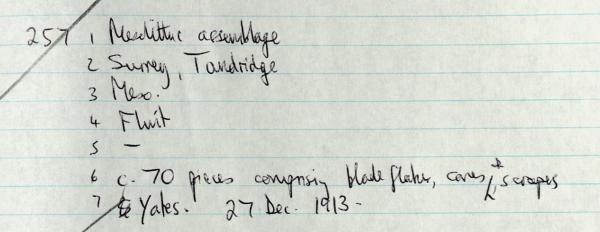 257 1 Mesolithic assemblage
2 Surrey, Tandridge
3 Meso.
4 Flint
5 –
6 c. 70 pieces comprising blade flakes, cores & scrapers
7 Yates. 27 Dec. 1913-